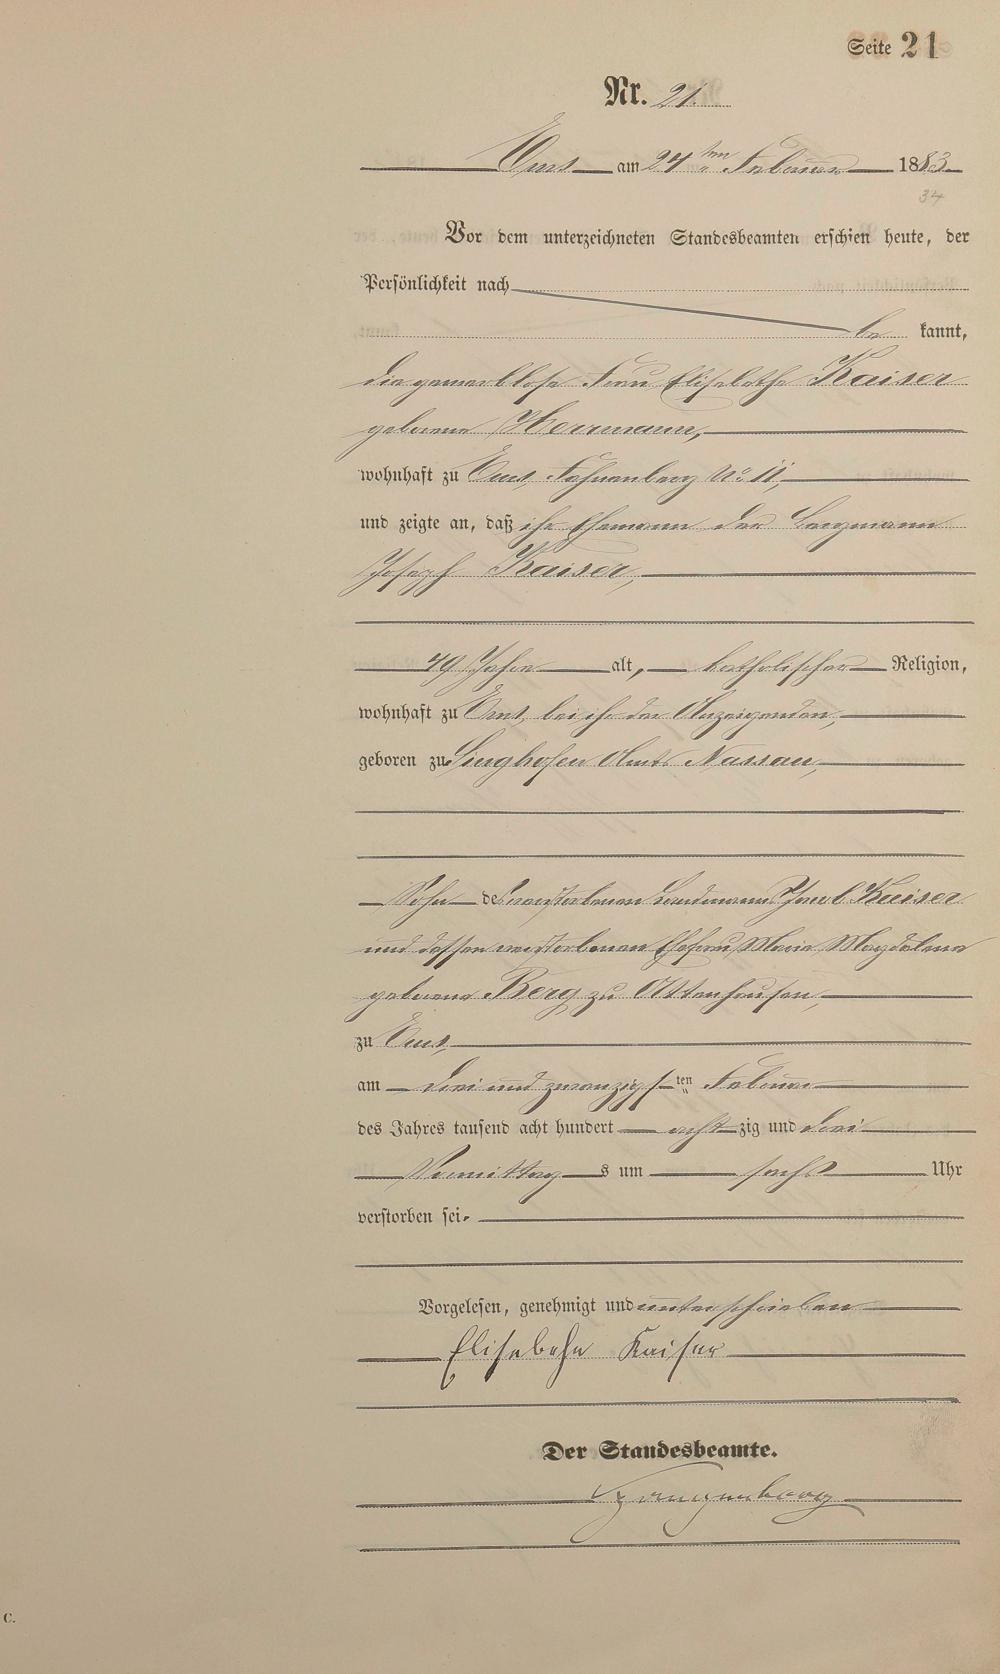 Seite 21
Nr. 21.
Ems am 24ten Februar 1883.
34
Vor dem unterzeichneten Standesbeamten erschien heute, der
Persönlichkeit nach
be kannt,
die gewerblose Frau Elisabethe Kaiser
geborene Herrmann,
wohnhaft zu Ems, Fahnenberg No 11,
und zeigte an, daß ihr Ehemann der Bergmann
Joseph Kaiser,
49 Jahre alt, katholischer Religion,
wohnhaft zu Ems, bei ihr der Anzeigenden,
geboren zu Singhofen Amts Nassau,
Sohn des verstorbenen Landmanns Jacob Kaiser
und dessen verstorbenen Ehefrau Maria Magdalena
geborene Berg zu Attenhausen,
zu Ems,
am drei und zwanzigsten Februar
des Jahres tausend acht hundert acht zig und drei
Vormittag s um sechs Uhr
verstorben sei.
Vorgelesen, genehmigt und unterschrieben
Elisabethe Kaiser
Der Standesbeamte.
C.